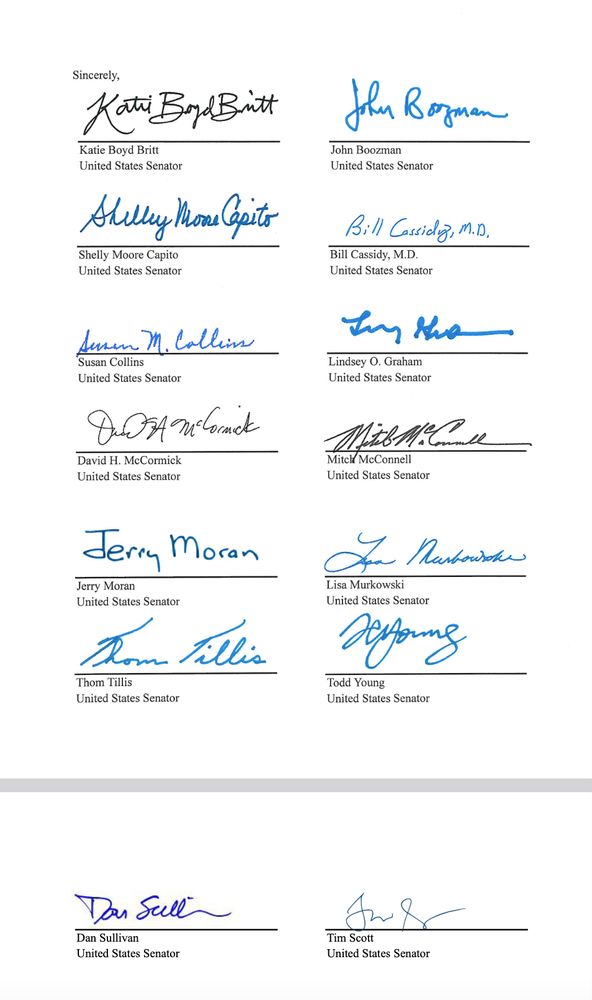 Sincerely,
Katie Boyd Britt
Katie Boyd Britt
United States Senator
John Boozman
John Boozman
United States Senator
Shelley Moore Capito
Shelly Moore Capito
United States Senator
Bill Cassidy, M.D.
Bill Cassidy, M.D.
United States Senator
Susan M. Collins
Susan Collins
United States Senator
Lindsey O. Graham
United States Senator
David H. McCormick
United States Senator
Mitch McConnell
Mitch McConnell
United States Senator
Jerry Moran
Jerry Moran
United States Senator
Lisa Murkowski
Lisa Murkowski
United States Senator
Thom Tillis
Thom Tillis
United States Senator
Todd Young
United States Senator
Dan Sullivan
United States Senator
Tim Scott
United States Senator